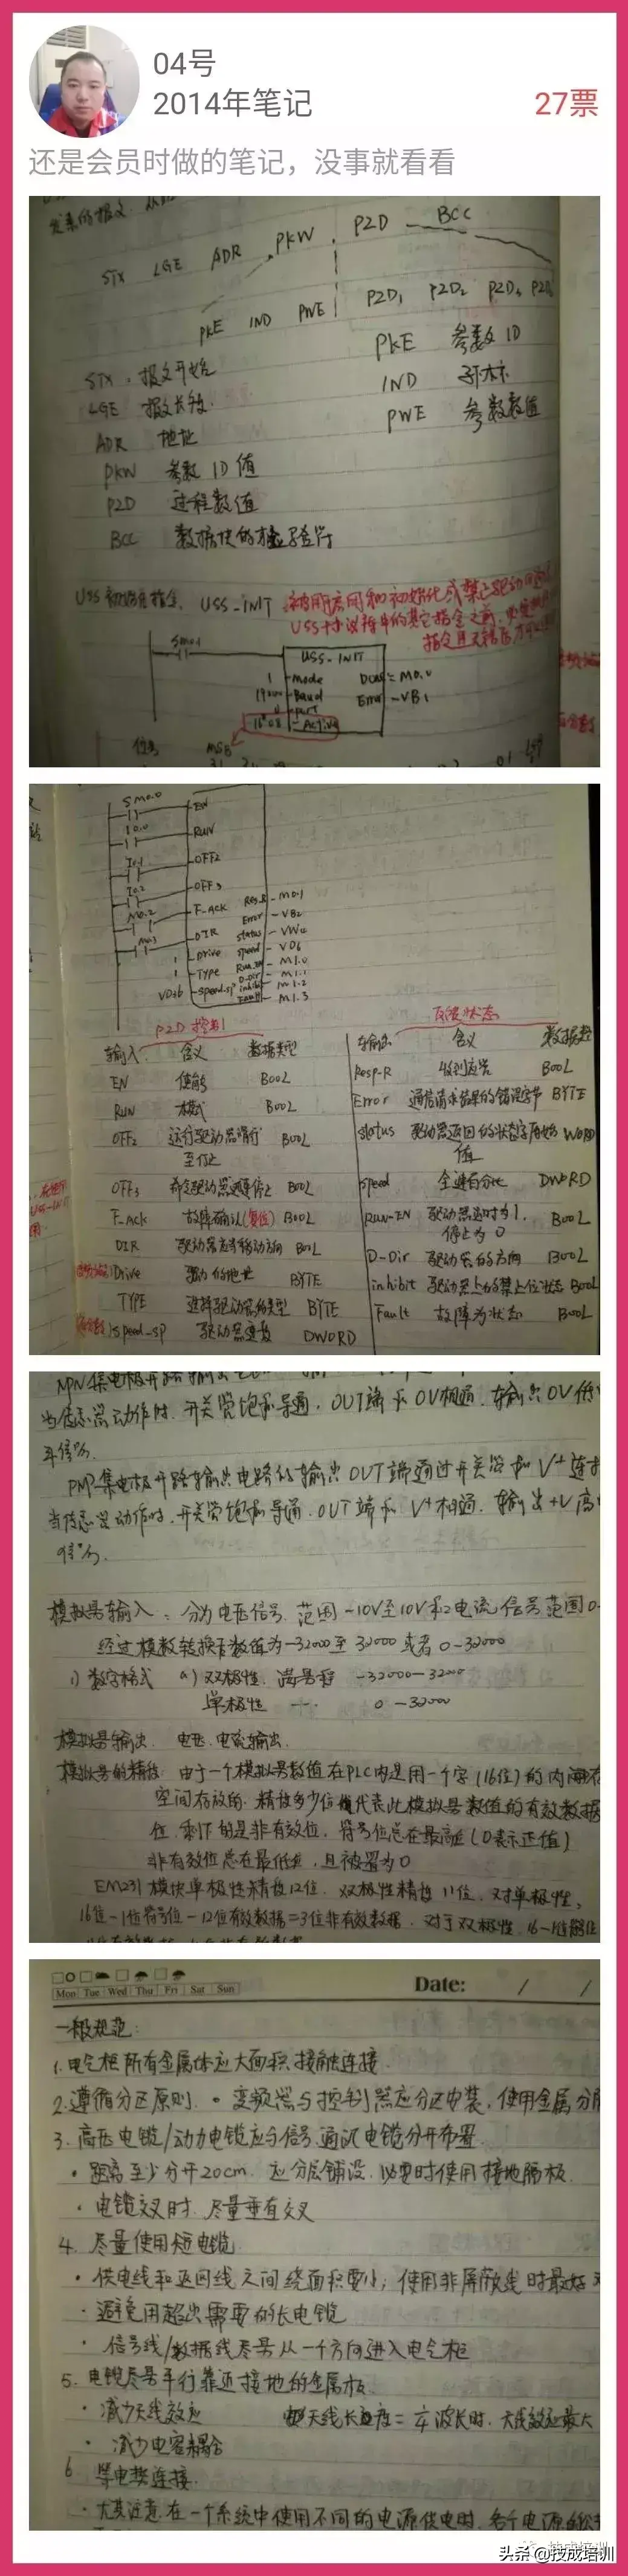 04号
2014年笔记
27票
还是会员时做的笔记，没事就看看
发来的报文
STX LGE ADR PKW PZD BCC
PKE IND PWE PZD₁ PZD₂
STX 报文开始
LGE 报文长度
ADR 地址
PKW 参数ID值
PZD 过程数值
BCC 数据块的校验符
PKE 参数ID
IND
PWE 参数数值
USS_INIT
USS协议
SM0.1
USS-INIT
1 - Mode
Done - M0.0
Baud
Error - VB1
0 - port
16#08 - Active
MSB
SM0.0 EN
I0.0 RUN
I0.1 OFF2
I0.2 OFF3
M0.2 F_ACK Resp_R - M0.1
Error - VB2
M0.3 DIR status
1 Drive speed - VD6
1 Type Run_EN - M1.0
D-Dir - M1.1
speed-sp inhibit - M1.2
Fault - M1.3
PZD控制
反馈状态
输入 含义 数据类型
EN 使能 BOOL
RUN 模式 BOOL
OFF2 运行驱动器滑行至停止 BOOL
OFF3 命令驱动器迅速停止 BOOL
F_ACK 故障确认(复位) BOOL
DIR 驱动器应当移动方向 BOOL
Drive 驱动的地址 BYTE
TYPE 选择驱动器的类型 BYTE
speed-sp 驱动器速度 DWORD
输出 含义
Resp-R 收到应答 BOOL
Error 通信请求结果的错误字节 BYTE
status 驱动器返回的状态字原始值 WORD
speed 全速百分比 DWORD
RUN-EN 驱动器运行时为1, 停止为0 BOOL
D-Dir 驱动器的方向 BOOL
inhibit 驱动器上的禁止位状态 BOOL
Fault 故障为状态 BOOL
NPN集电极开路输出
当传感器动作时, 开关管饱和导通, OUT端和0V相通, 输出0V低
平信号.
PNP集电极开路输出电路的输出OUT端通过开关管和V+连接
当传感器动作时, 开关管饱和导通, OUT端和V+相通, 输出+V高
信号.
模拟量输入: 分为电压信号 范围-10V至10V和电流信号 范围0-
经过模数转换后数值为-32000至32000或者0-32000
1) 数字格式 a) 双极性 满量程 -32000-32000
单极性 0-32000
模拟量输出 电压. 电流输出.
模拟量的精度: 由于一个模拟量数值在PLC内是用一个字(16位)的内存
空间存放的. 精度多少位代表此模拟量数值的有效数据
位, 剩下的是非有效位, 符号位总在最高位(0表示正值)
非有效位总在最低位, 且被置为0
EM231模块单极性精度12位. 双极性精度11位, 对单极性,
16位-1位符号位-12位有效数据=3位非有效数据. 对于双极性,
Date: / /
Mon Tue Wed Thu Fri Sat Sun
一般规范:
1. 电气柜所有金属体应大面积接触连接.
2. 遵循分区原则. • 变频器与控制器应分区安装, 使用金属分隔
3. 高压电缆/动力电缆应与信号 通讯电缆分开布置
• 距离至少分开20cm. 应分层铺设. 必要时使用接地隔板.
• 电缆交叉时, 尽量垂直交叉
4. 尽量使用短电缆
• 供电线和返回线之间绕面积要小; 使用非屏蔽线时最好
• 避免用超出需要的长电缆
• 信号线/数据线尽量从一个方向进入电气柜
5. 电缆尽量平行靠近接地的金属板
• 减少天线效应 天线长度=¼波长时, 天线效应最大
• 减少电容耦合
6 等电势连接.
• 尤其注意. 在一个系统中使用不同的电源供电时, 各个电源
头条 @技成培训